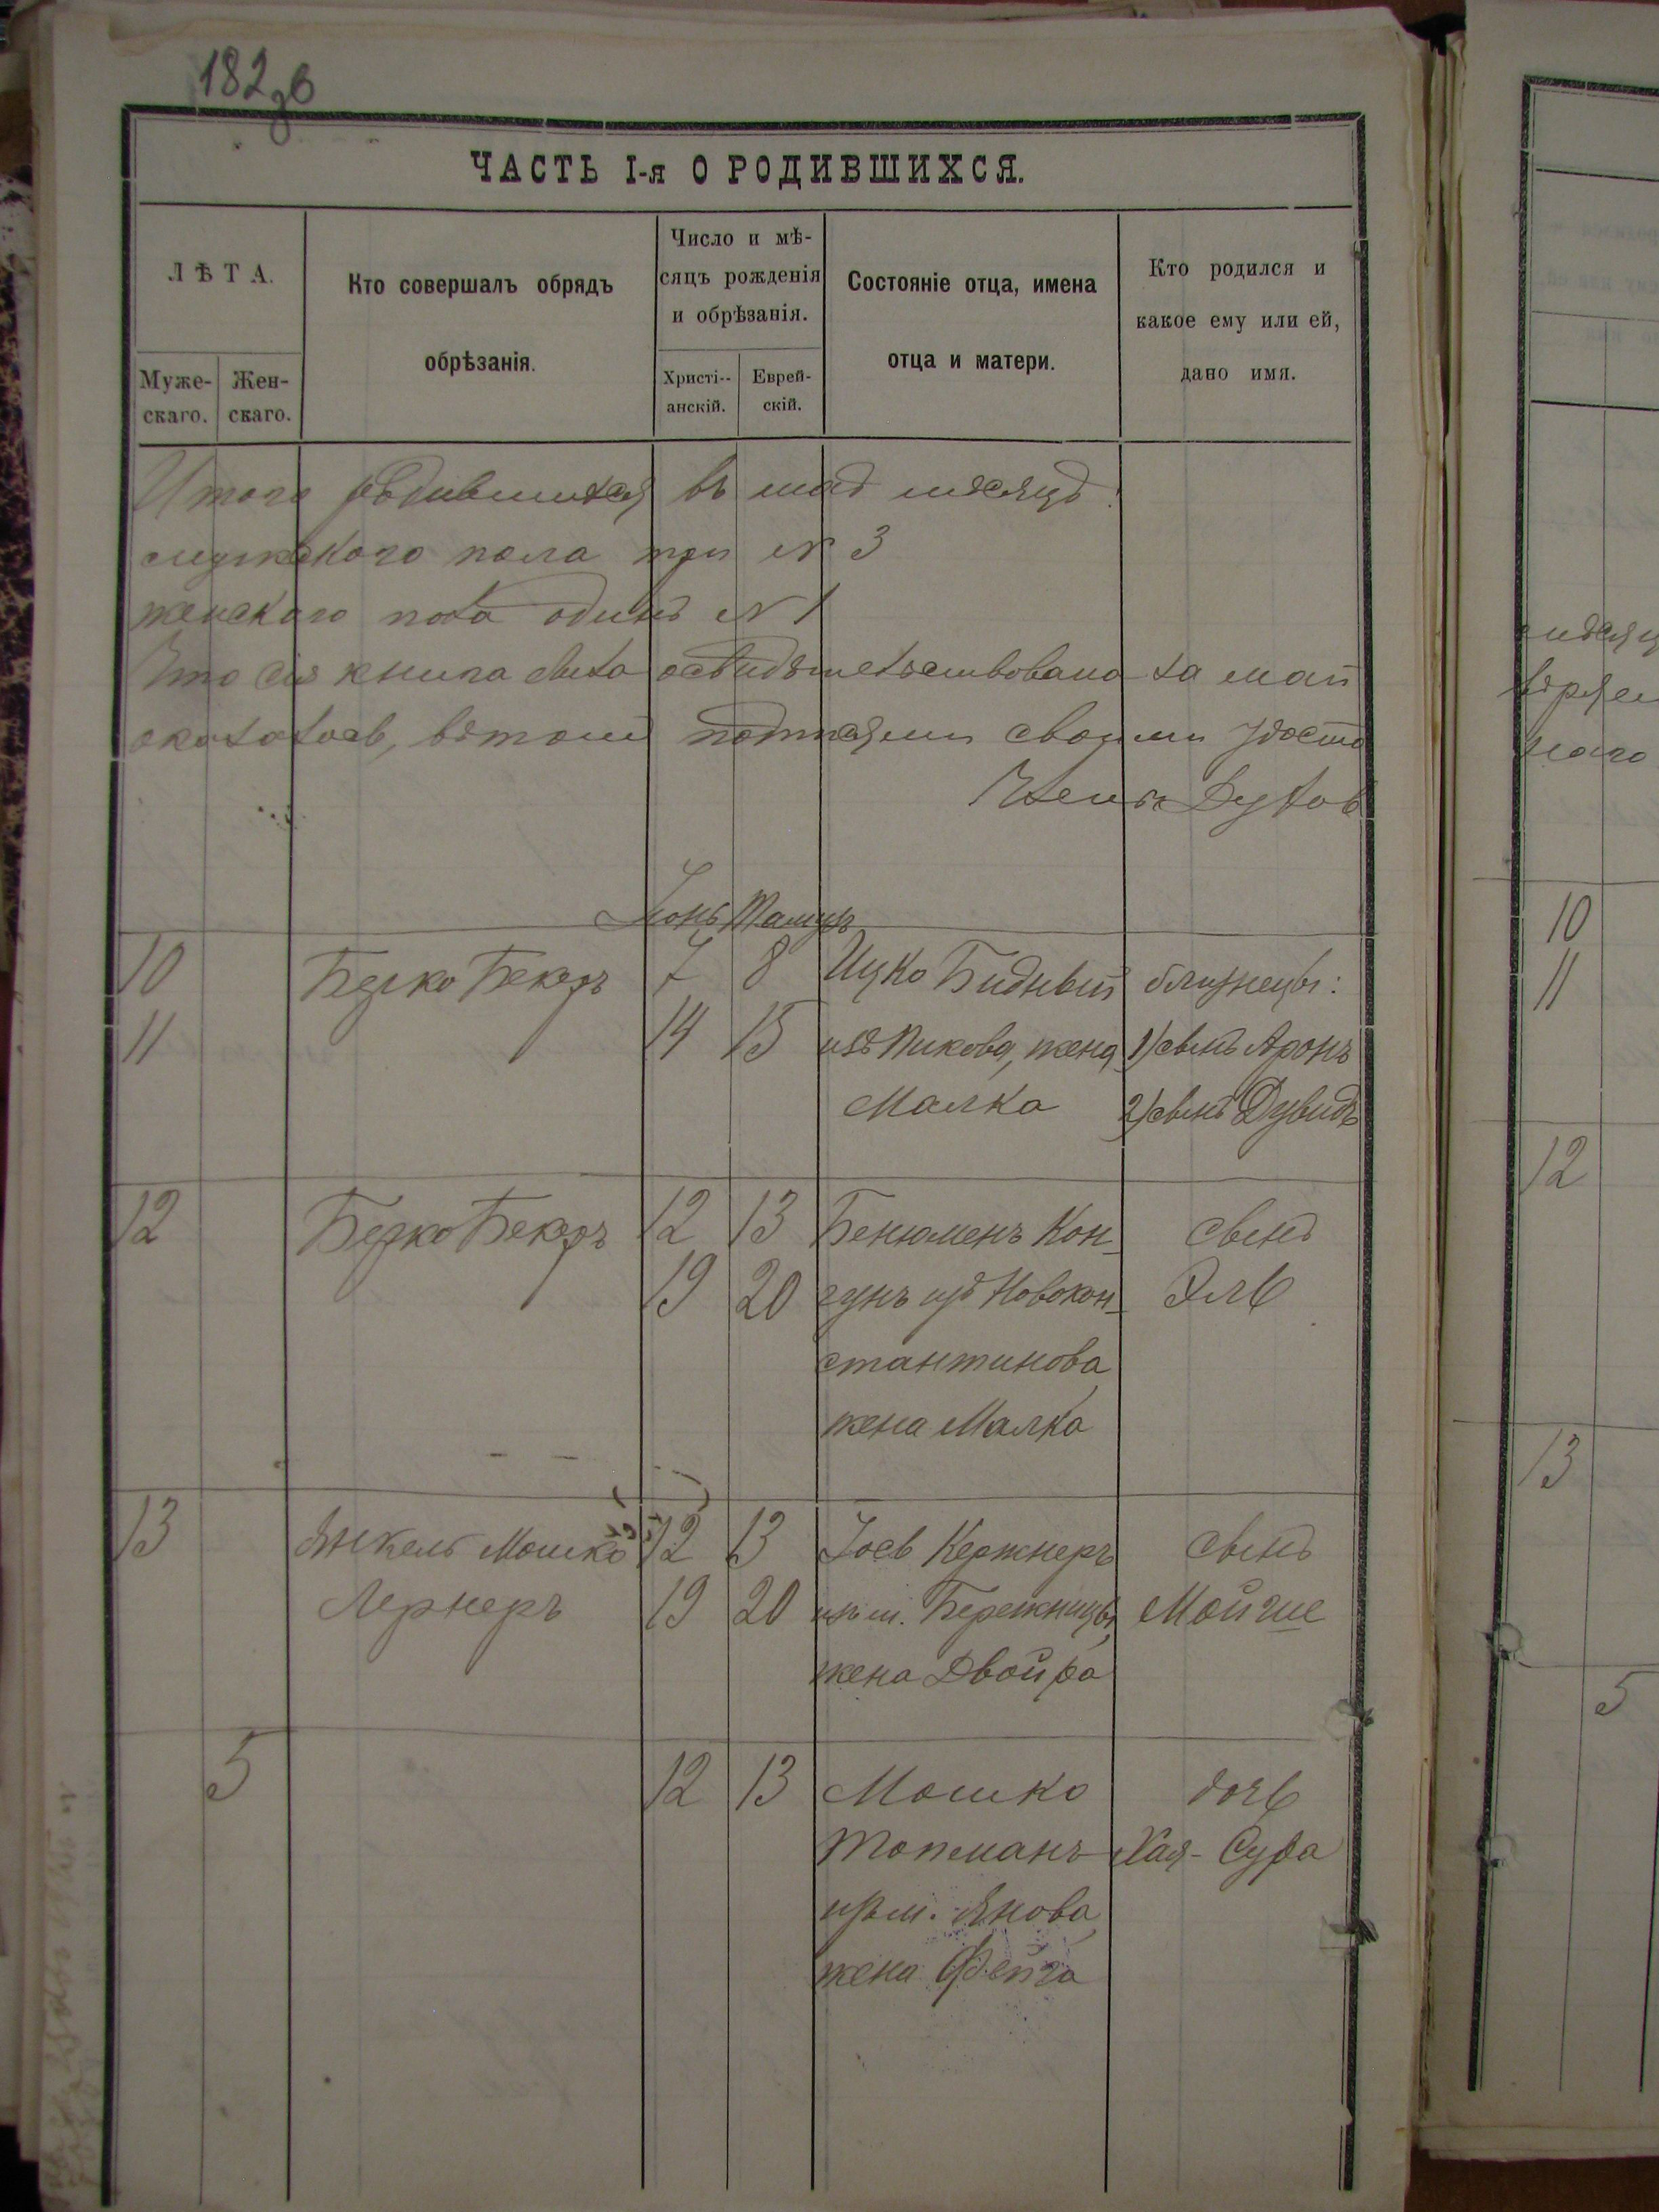 182 об
ЧАСТЬ I-я О РОДИВШИХСЯ.
ЛѢТА.
Муже-
скаго.
Жен-
скаго.
Кто совершалъ обрядъ
обрѣзанія.
Число и мѣ-
сяцъ рожденія
и обрѣзанія.
Христі--
анскій.
Еврей-
скій.
Состояніе отца, имена
отца и матери.
Кто родился и
какое ему или ей,
дано имя.
Итого родившихся въ май мѣсяцѣ:
мужскаго пола три № 3
женскаго пола одинъ № 1
Что сія книга была освидѣтельствована за май
оказалось, въ томъ подписями своими удосто
Членъ
Іюнь Тамузъ
10 Берко Бекеръ 7 8 Ицко Бидный близнецы:
11 14 15 изъ Пикова, жена 1) сынъ Аронъ
Малка 2) сынъ Дувидъ
12 Берко Бекеръ 12 13 Бенюменъ Кон- сынъ
19 20 гунъ изъ Новокон- Эль
стантинова
жена Малка
13 Янкель Мошко 12 13 Іось Кержнеръ сынъ
Лернеръ 19 20 изъ м. Бережницы, Мойше
жена Двойра
5 12 13 Мошко дочь
Топманъ Хая-Сура
изъ м. Янова
жена Фейга
мѣсяц
10
11
12
13
5